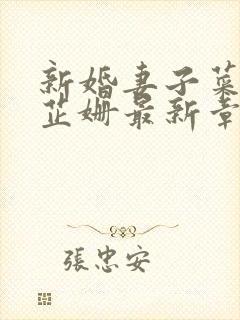 新婚妻子菜
芷姍最新章
張忠安